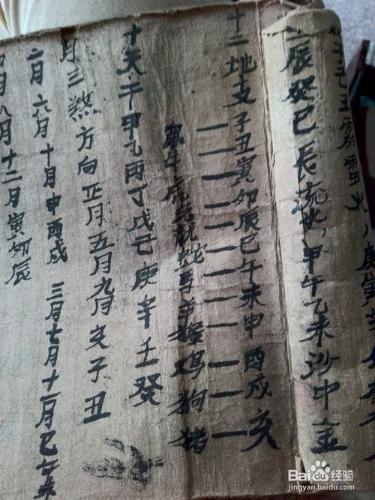 辰癸巳長流水 甲午乙未沙中金
十二地支子丑寅卯辰巳午未申酉戌亥
鼠牛虎兔龍蛇馬羊猴鸡狗猪
十天干甲乙丙丁戊己庚辛壬癸
月三煞方向正月五月九月亥子丑
二月六月十月申酉戌 三月七月十一月巳午未
月八月十二月寅卯辰
Baidu经验
jingyan.baidu.com